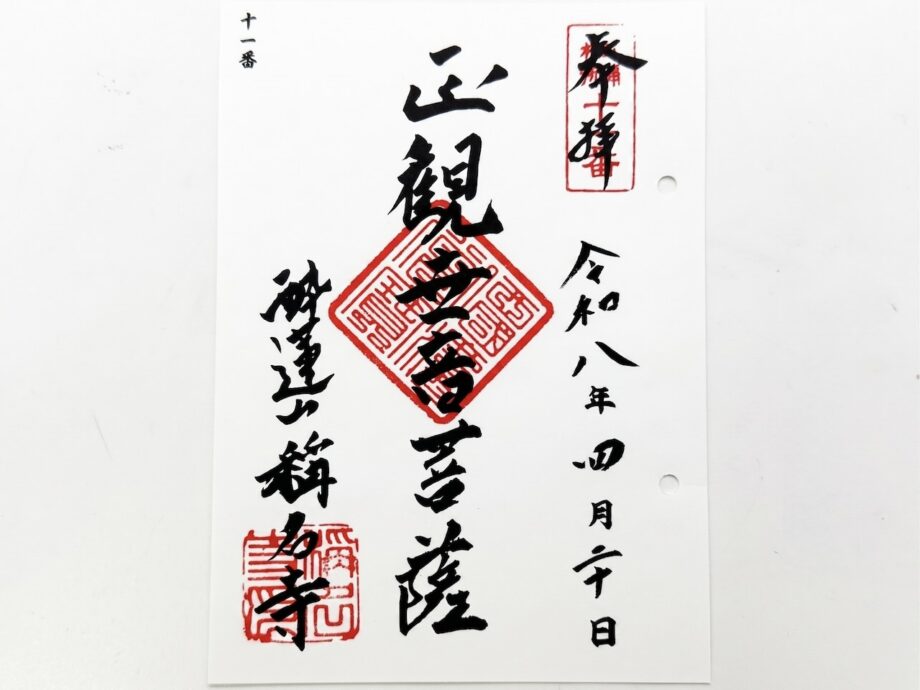 奉拝
十一番
令和八年四月二十日
正観世音菩薩
酔蓮山稱名寺
十一番